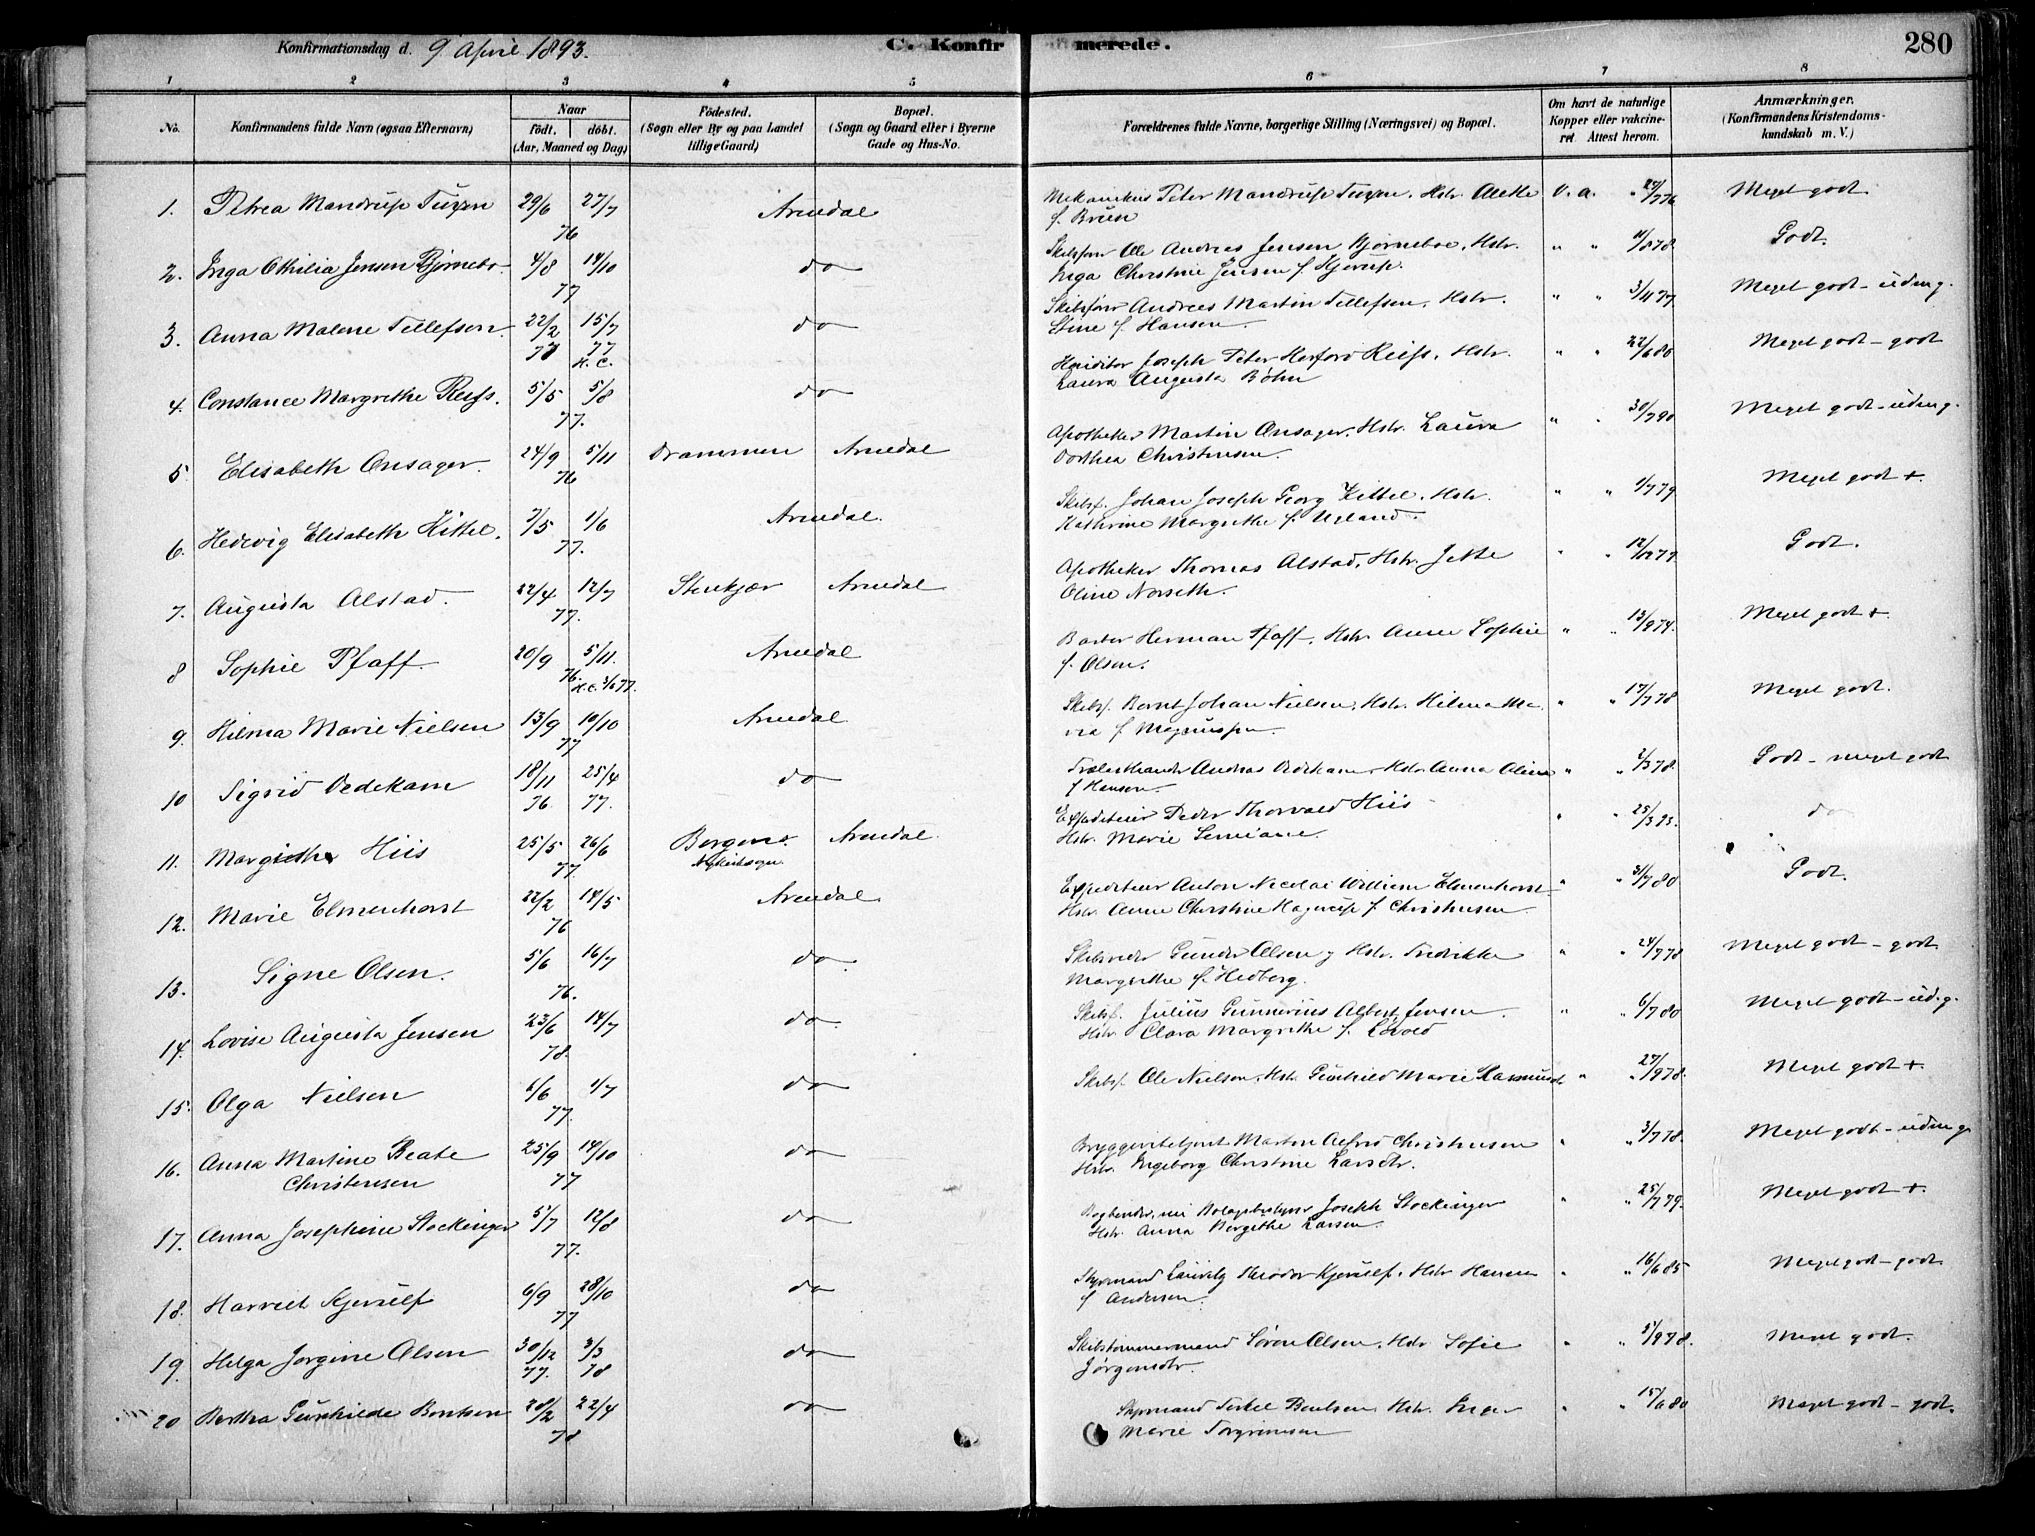 Konfirmationsdag d. 9 April 1893.
C. Konfirmerede.
280
1 2 3 4 5 6 7 8
No.
Konfirmandens fulde Navn (ogsaa Efternavn)
Naar
født. døbt.
(Aar, Maaned og Dag)
Fødested.
(Sogn eller By og paa Landet
tillige Gaard)
Bopæl.
(Sogn og Gaard eller i Byerne
Gade og Hus-No.
Forældrenes fulde Navne, borgerlige Stilling (Næringsvei) og Bopæl.
Om havt de naturlige
Kopper eller vakcine-
ret. Attest herom.
Anmærkninger.
(Konfirmandens Kristendoms-
kundskab m. V.)
1. Petrea Mandrup 29/6 27/7 Arendal Mekanikus Peter Mandrup Hstr. Alette v. a. Meget godt
76 f. Bruun
2. Inga Othilia Jensen Bjørnebo 4/8 14/10 do Skibsfører Ole Andreas Jensen Bjørneboe, Hstr. " " Godt.
77 Inga Christine Jensen f.
3. Anna Malene Tellefsen 22/2 15/7 do Skibsfører Andreas Martin Tellefsen, Hstr. " " 3/11 77 Meget godt - udm g.
77 H. C. Stine f. Hansen
4. Constance Margrethe 5/5 5/8 do Joseph Peter Hstr. " " 22/6 80 Meget godt - godt
77. Laura Augusta Bøhn
5 Elisabeth Ansager. 24/9 5/11 Drammen Arendal Apotheker Martin Ansager, Hstr. Laura " " 30/7 90 Meget godt - udm g.
76 Dorthea Christensen.
6. Hedevig Elisabeth Kittel. 7/5 1/6 Arendal. Skibsf. Johan Joseph Georg Kittel, Hstr. " " 1/7 79 Meget godt +.
77. Kathrine Margrethe f. Ugland.
7. Augusta Alstad. 22/4 12/7 Stenkjær Arendal Apotheker Thomas Alstad, Hstr. Jette " " Godt.
77. Oline Norseth.
8 Sophie Pfaff. 20/9 5/11. Arendal Barber Herman Pfaff, Hstr. Anne Sophie " " Meget godt +
76. H. C. f. Olsen.
9. Hilma Marie Nielsen 13/9 10/10 Arendal Skibsf. Bernt Johan Nielsen, Hstr. Hilma Ma- " " 17/7 78 Meget godt.
77 ria f.
10 Sigrid Dedekam 18/11 25/4 do Andreas Dedekam, Hstr. Anna Oline " " 2/3 78. Godt - meget godt
76. 77. f Hansen.
11. Margrethe Hiis 25/5 26/6 Bergen Arendal. Expediteur Peder Thorvald Hiis " " 25/3 93. do
77. Nykirkesogn. Hstr. Marie
12. Marie Elmenhorst 22/2 14/5 Arendal Expediteur Anton Nicolai William Elmenhorst " " 3/7 80 Godt.
76 Hstr. Anne Christine Hagerup f Christensen
13. Signe Olsen. 5/6 16/7 do Skibsreder Gunder Olsen, Hstr. Fredrikke " " 24/7 78 Meget godt - godt
76. Margrethe f. Hedberg.
14. Lovise Augusta Jensen 23/6 14/7 do Skibsf. Julius Gunnerius Albert Jensen. " " 6/7 80 Meget godt - udm g.
78. Hstr. Clara Margrethe f.
15. Olga Nielsen 6/6 1/7 do Skibsf. Ole Nielsen, Hstr. Gunhild Marie " " 27/9 78. Meget godt +
77.
16. Anna Martine Beate 25/9 14/10 do Martin Alfred Christensen " " 3/7 78. Meget godt - udm g.
Christensen 77 Hstr. Ingeborg Christine Larsdtr.
17. Anna Josephine Stockinger 5/7 12/8 do Bogbinder, nu Joseph Stockinger " " 25/7 79. Meget godt +.
77. Hstr. Anna Bergithe Larsen.
18. Harriet Kjerulf 6/9 28/10 do Styrmand Lauritz Theodor Kjerulf, Hstr. Hanna " " 16/6 85 Meget godt - godt
77 f Andersen.
19. Helga Jorgine Olsen 30/12 3/3 do Skibstømmermand Søren Olsen, Hstr. Sofie " " 5/9 78. Meget godt.
77. 78 Jørgensdtr.
20 Bertha Gunhilde Bentsen 20/2 22/4 do Styrmand Terkel Bentsen, Hstr. Inger " " 15/6 80 Meget godt - godt.
78 Marie Torgrimsen